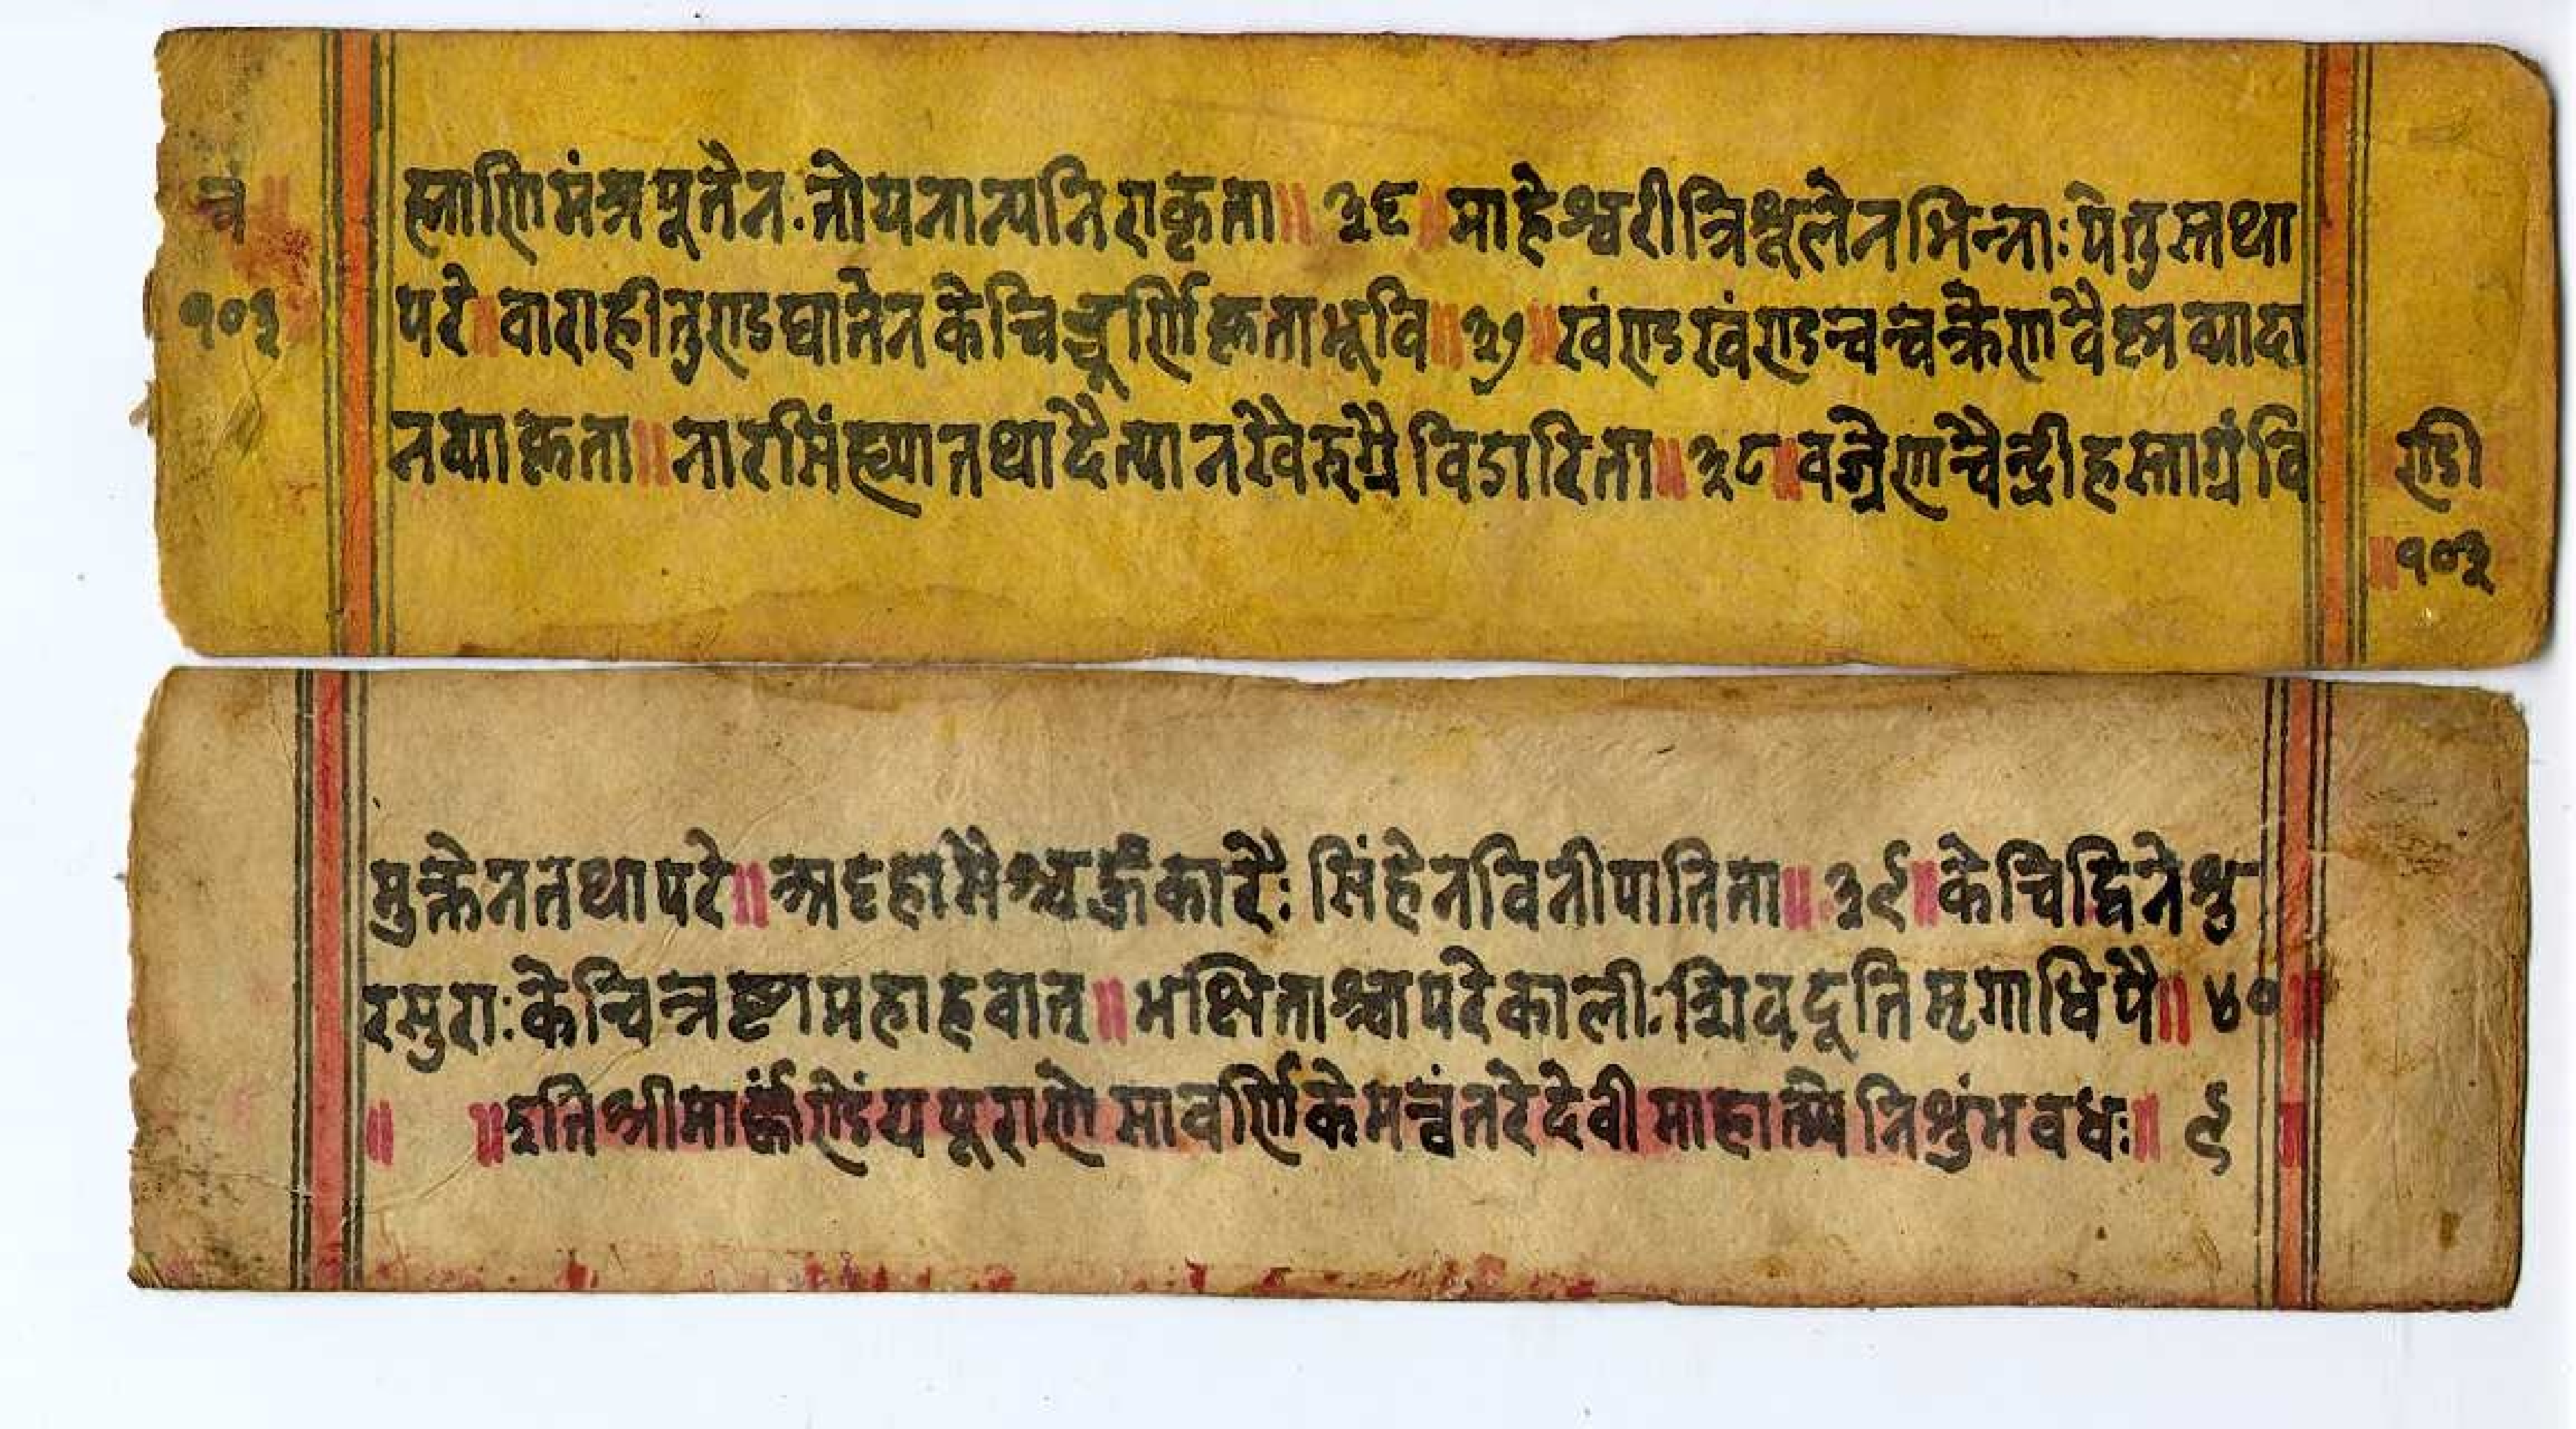 चं॥
१०३
ह्माणिमंत्रपूतेन.तोयनान्यनिराकृता॥३६॥माहेश्वरीत्रिशूलेनभिन्नाःपेतुस्तथा
परे॥वाराहीतुण्डघातेनकेचिच्चूर्णिकृताभूवि॥३७॥खंण्डखंण्डन्चचक्रेणवैष्णव्यादा
नव्याकृता॥नारसिंह्यातथादैत्यानरेवैरुग्रैविडारिता॥३८॥वज्रेणचैन्द्रीहस्ताग्रंवि
ण्डी
॥१०३
मुक्तेनतथापरे॥अट्टहासैश्चर्हुंकारैःसिंहेनविनीपातिता॥३९॥केचिद्विनेशु
रसुराःकेचिन्नष्टामहाहवात्॥भक्षिताश्चापरेकालीःशिवदूतिमृगाधिपै॥४०॥
॥ ॥इतिश्रीमार्कंण्डेंयपूराणेसावर्णिकेमन्वंतरेदेवीमाहात्म्येनिशुंभवधः॥९॥